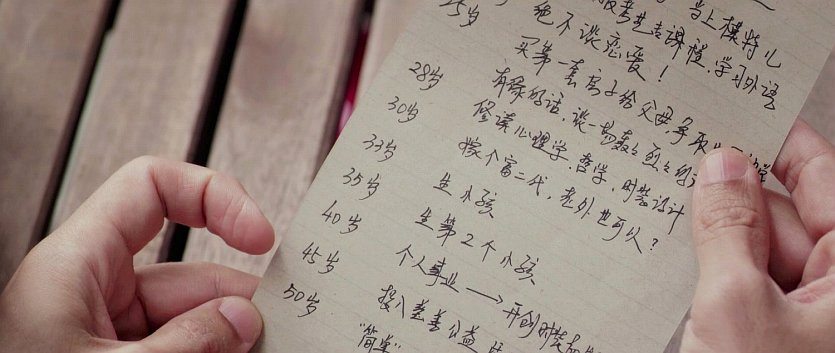 当上模特儿
25岁 报考艺专课程,学习外语
绝不谈恋爱!
买第一套房子给父母,争取
28岁 有缘的话,谈一场轰轰烈烈的
30岁 修读心理学、哲学、时装设计
33岁 嫁个富二代,老外也可以?
35岁 生小孩
40岁 生第2个小孩
45岁 个人事业→开创时装
50岁 投入慈善公益
"简单"